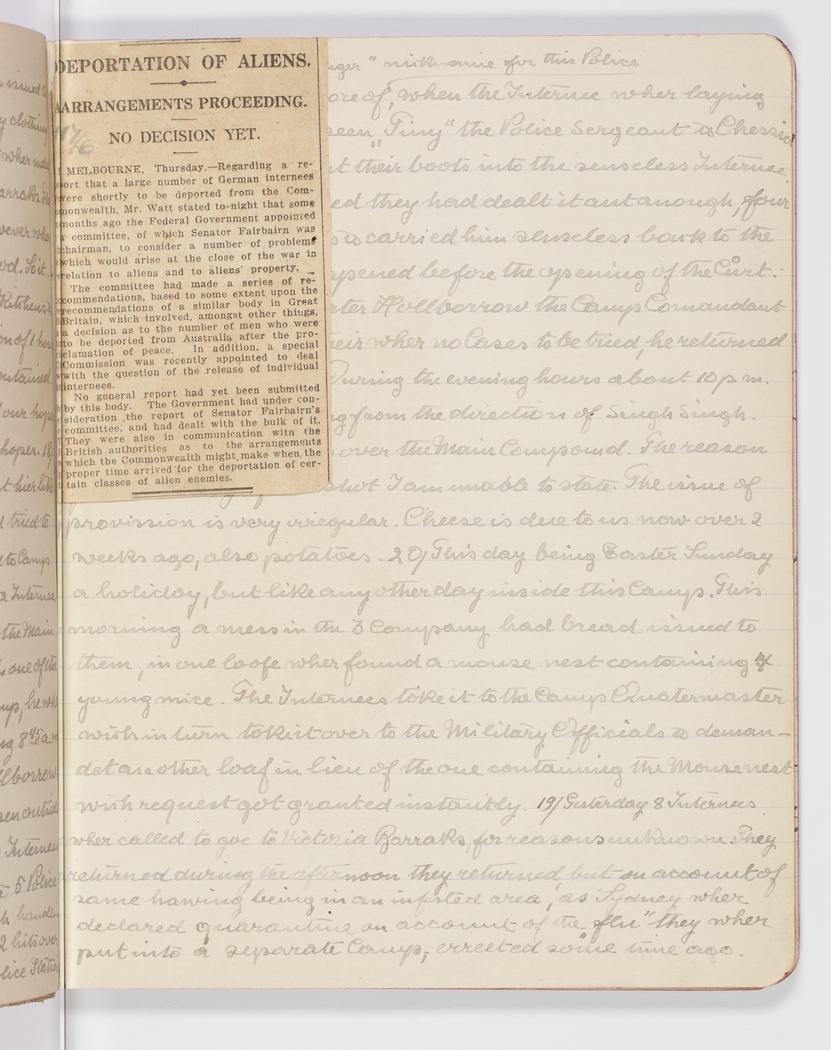 DEPORTATION OF ALIENS.
ARRANGEMENTS PROCEEDING.
NO DECISION YET.
MELBOURNE, Thursday.—Regarding a re-
port that a large number of German internees
were shortly to be deported from the Com-
monwealth, Mr. Watt stated to-night that some
months ago the Federal Government appointed
a committee, of which Senator Fairbairn was
chairman, to consider a number of problems
which would arise at the close of the war in
relation to aliens and to aliens' property.
The committee had made a series of re-
commendations, based to some extent upon the
recommendations of a similar body in Great
Britain, which involved, amongst other things,
a decision as to the number of men who were
to be deported from Australia after the pro-
clamation of peace. In addition, a special
Commission was recently appointed to deal
with the question of the release of individual
internees.
No general report had yet been submitted
by this body. The Government had under con-
sideration the report of Senator Fairbairn's
committee, and had dealt with the bulk of it.
They were also in communication with the
British authorities as to the arrangements
which the Commonwealth might make when the
proper time arrived for the deportation of cer-
tain classes of alien enemies.
nickname for this Police
when the Internee wher laying
"Tiny" the Police Sergeant & Chessie
their boots into the senseless Internee.
ed they had dealt it aut anough, four
carried him senseless back to the
beefore the opening of the Curt.
Hollborrow the Camp Comandant
wher no Cases to be tried, he returned
During the evening hours about 10 p.m.
from the direction of Singh Singh.
over the Main Compound. The reason
shot I am unable to state. The issue of
provission is very irregular. Cheese is due to us now over 2
weeks ago, also potatoes. 20/ This day being Easter Sunday
a holiday, but like any other day inside this Camp. This
morning a mess in the 3 Company had bread issued to
them, in one loofe wher found a mouse nest containing 4
young mice. The Internees toke it to the Camp Quatermaster
wish in turn tok it over to the Military Officials to deman-
det another loaf in lieu of the one containing the Mouse nest
wish request got granted instantly. 19/ Yesterday 8 Internees
wher called to goe to Victoria Barraks, for reasons unknown. They
returned during the afternoon they returned but on account of
same hawing being in an infested area, as Sydney wher
declared quarantine on account of the "flu" they wher
put into a separate Camp, errected some time ago.